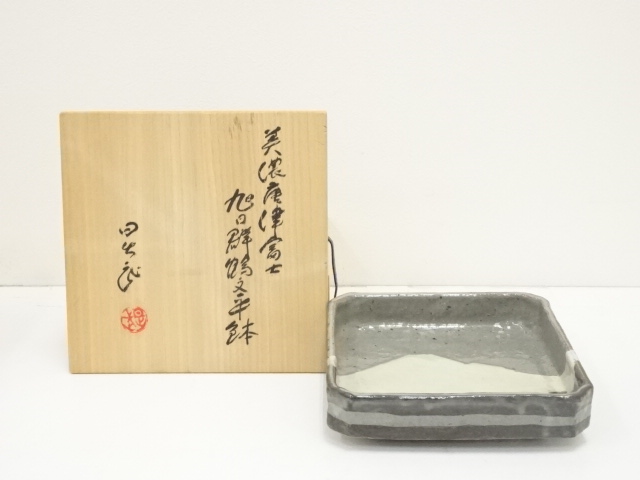 美濃唐津富士
旭日群鶴文平鉢